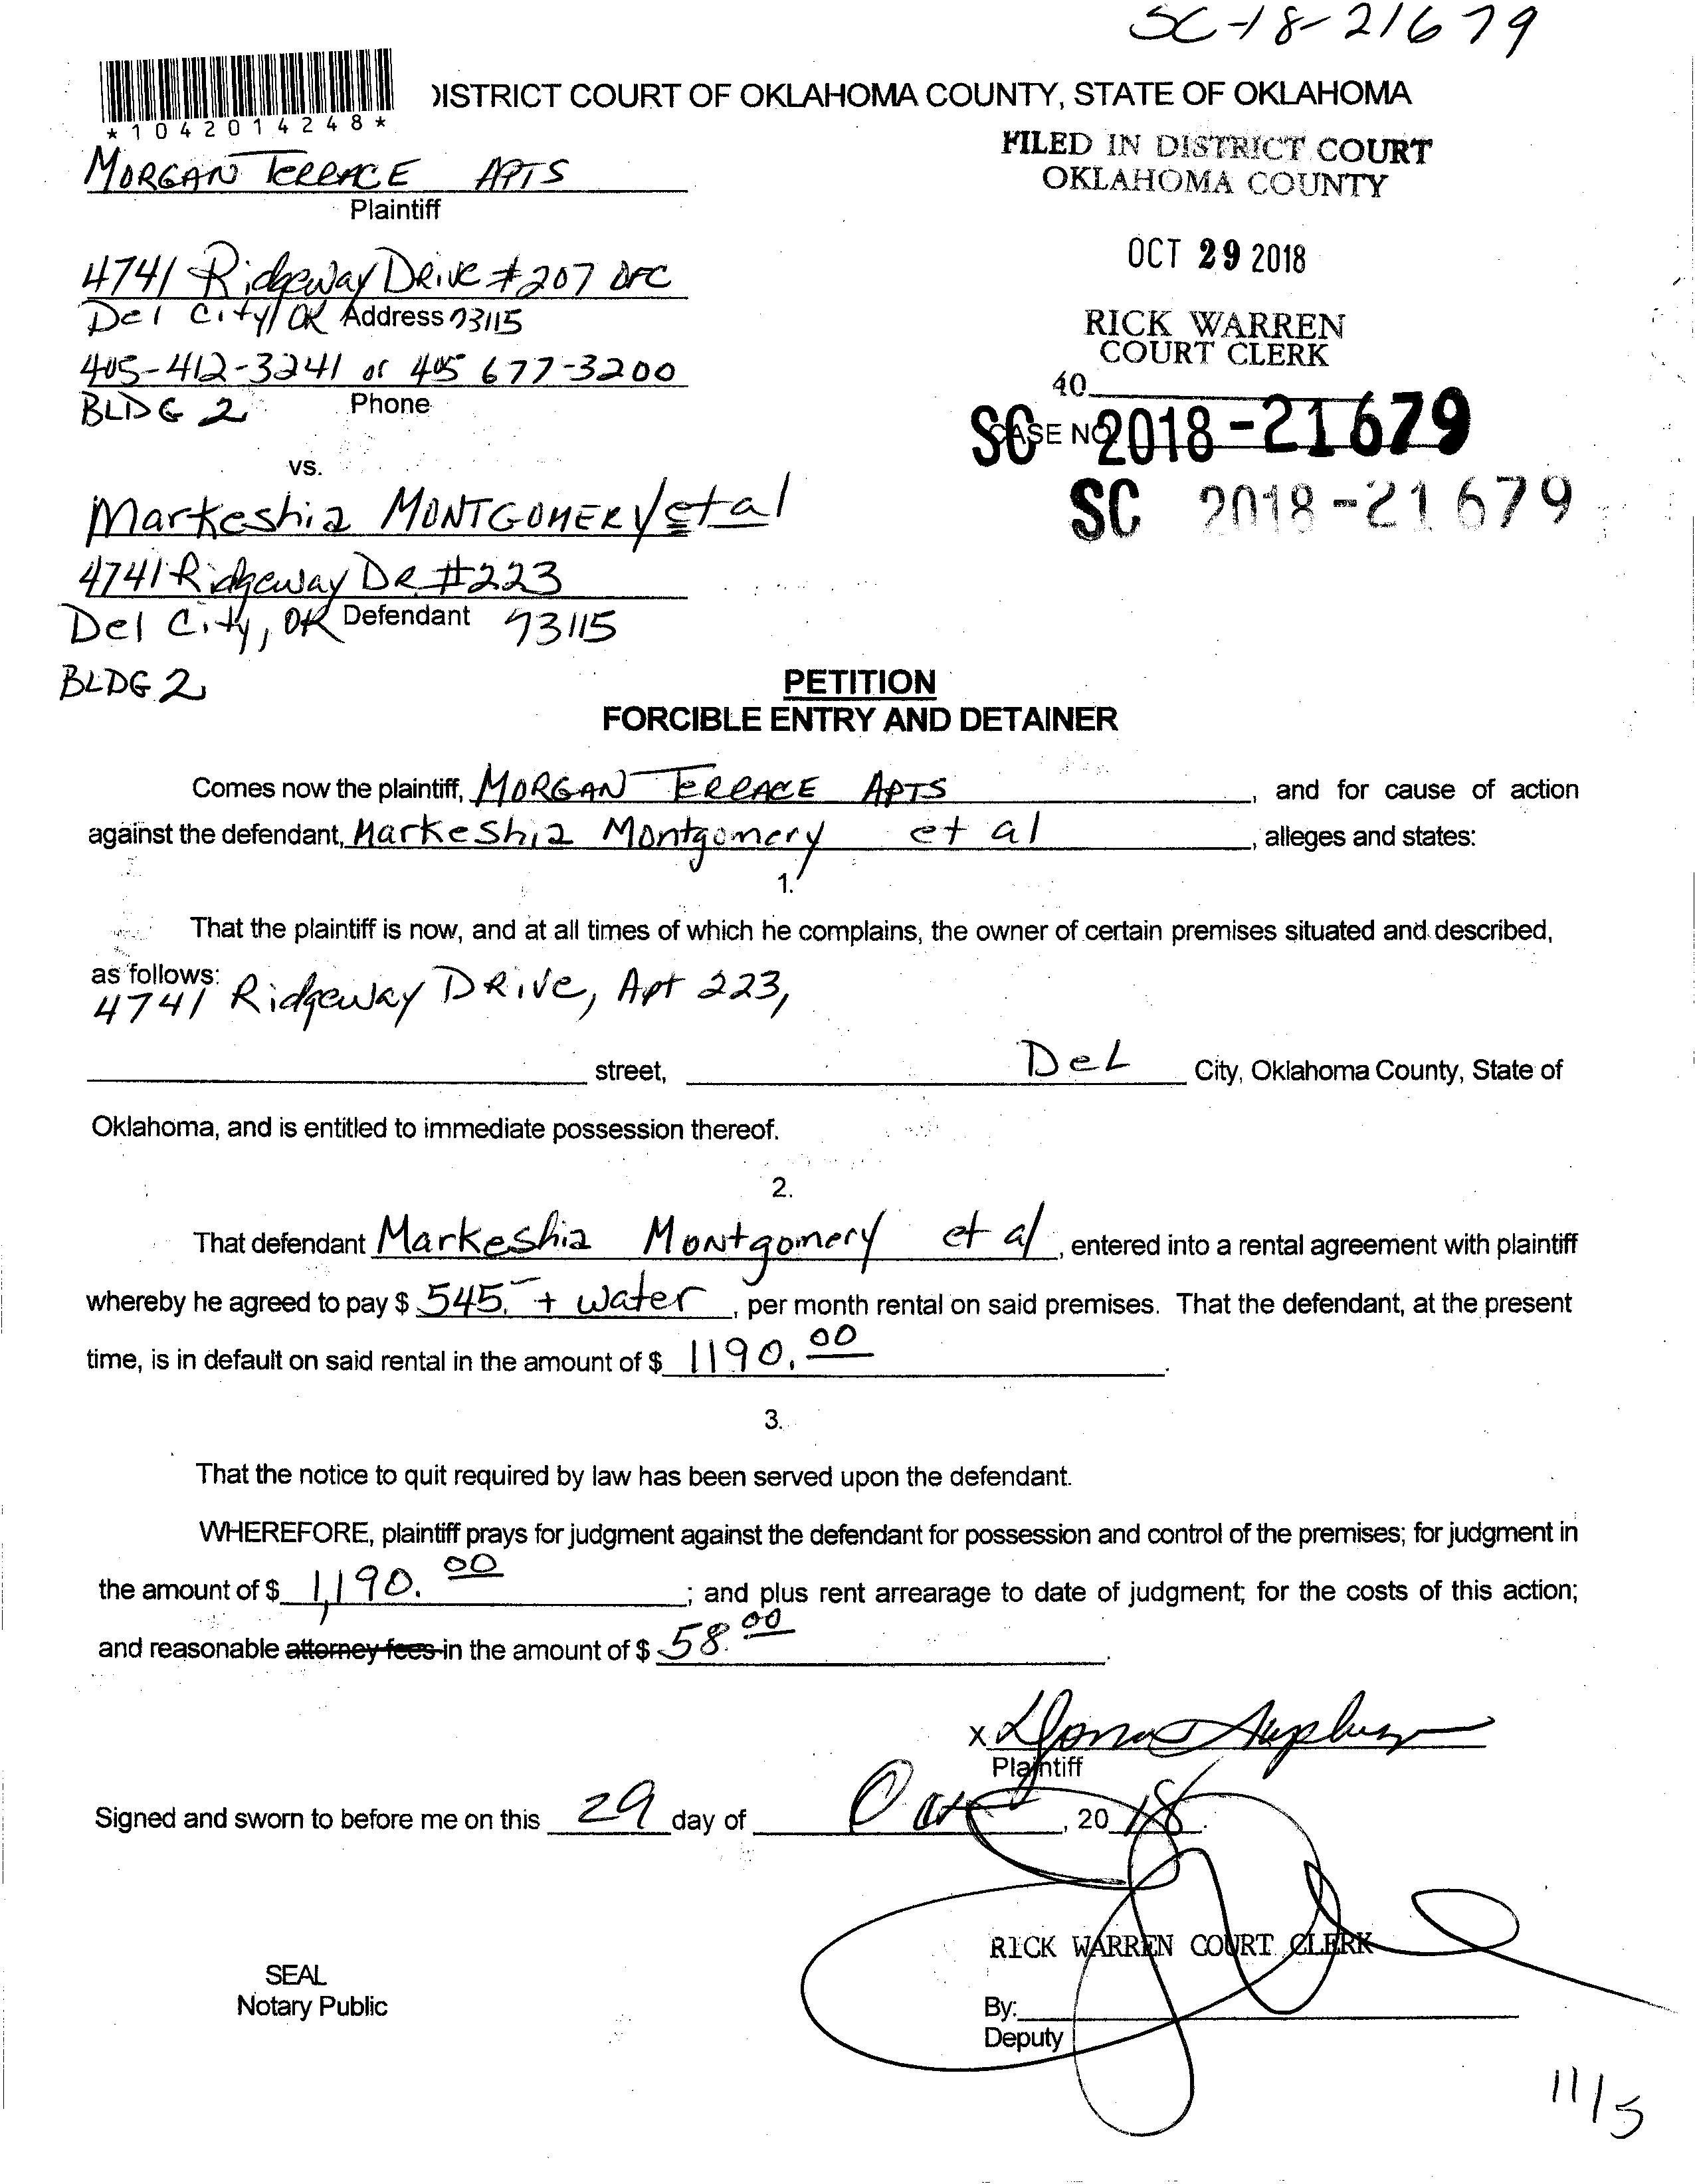 SC-18-21679
ISTRICT COURT OF OKLAHOMA COUNTY, STATE OF OKLAHOMA
*1042014248*
FILED IN DISTRICT COURT
OKLAHOMA COUNTY
MORGAN TERRACE APTS
Plaintiff
OCT 29 2018
4741 Ridgeway Drive #207 OFC
Del City, OK Address 73115
RICK WARREN
COURT CLERK
405-412-3241 or 405 677-3200
40
BLDG 2 Phone
CASE NO.
SC 2018-21679
vs.
SC 2018-21679
Markeshia MONTGOMERY et al
4741 Ridgeway DR #223
Del City, OK Defendant 73115
BLDG 2
PETITION
FORCIBLE ENTRY AND DETAINER
Comes now the plaintiff, MORGAN TERRACE APTS, and for cause of action
against the defendant, Markeshia Montgomery et al, alleges and states:
1.
That the plaintiff is now, and at all times of which he complains, the owner of certain premises situated and described,
as follows:
4741 Ridgeway DRive, Apt 223,
street, DeL City, Oklahoma County, State of
Oklahoma, and is entitled to immediate possession thereof.
2.
That defendant Markeshia Montgomery et al, entered into a rental agreement with plaintiff
whereby he agreed to pay $ 545.- + water, per month rental on said premises. That the defendant, at the present
time, is in default on said rental in the amount of $ 1190.00.
3.
That the notice to quit required by law has been served upon the defendant.
WHEREFORE, plaintiff prays for judgment against the defendant for possession and control of the premises; for judgment in
the amount of $ 1,190.00; and plus rent arrearage to date of judgment; for the costs of this action;
and reasonable attorney fees in the amount of $ 58.00.
X
Plaintiff
Signed and sworn to before me on this 29 day of , 20 18.
RICK WARREN COURT CLERK
SEAL
Notary Public
By:
Deputy
11/5